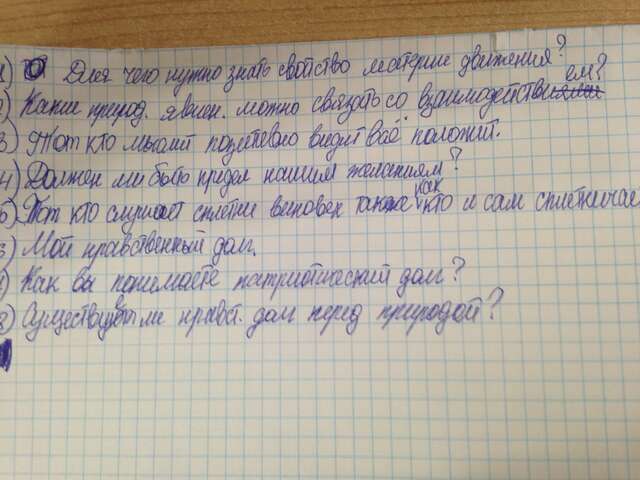 1) Для чего нужно знать свойство материи движения?
2) Какие природ. явлен. можно связать со взаимодействием?
3) Тот кто мыслит позитевно видит всё положит.
4) Должен ли быть предел нашим желаниям?
5) Тот кто слушает сплетни виновен также как кто и сам сплетничае
6) Мой нравственный долг.
7) Как вы понимаете патриотический долг?
8) Существует ли нравст. долг перед природой?